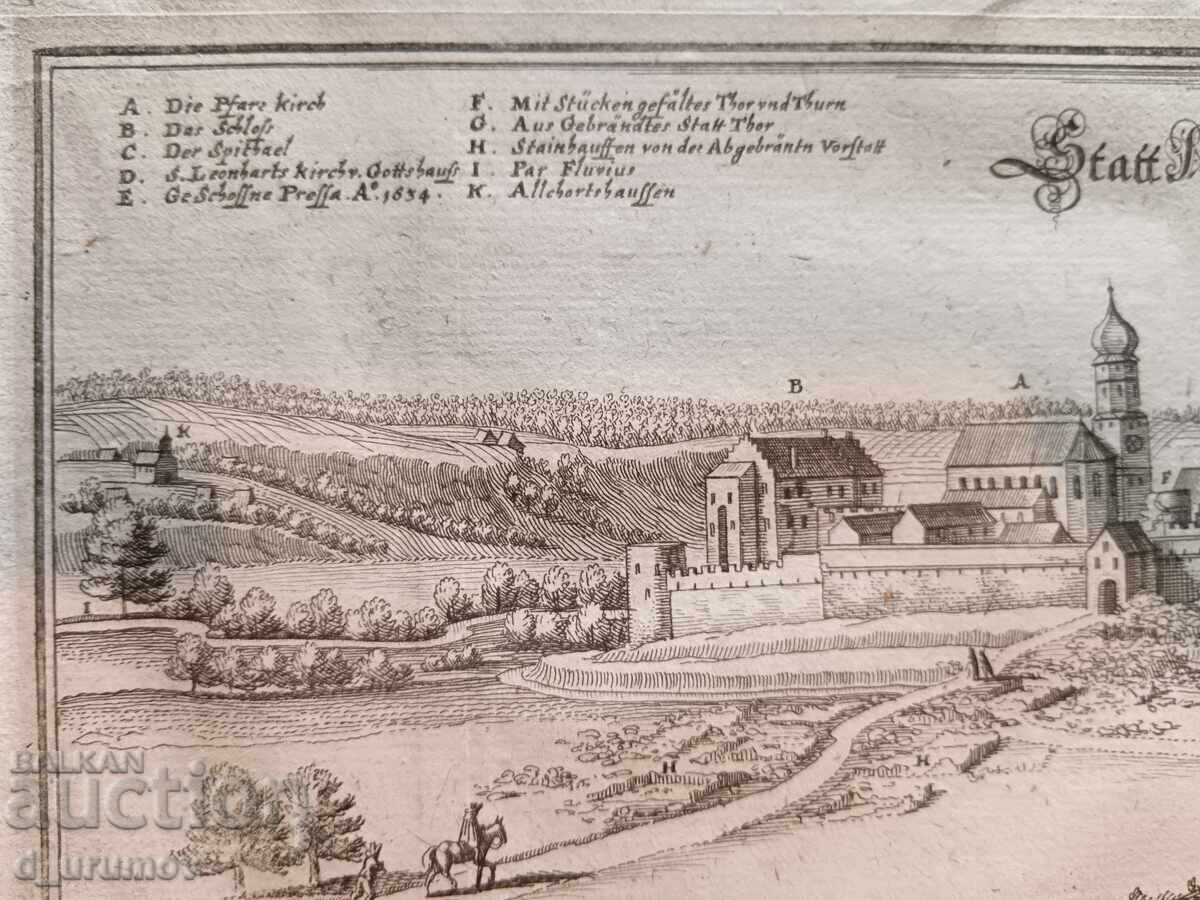 A. Die Pfarr kirch
B. Das Schloss
C. Der Spithael
D. S. Leonharts kirch v. Gottshauss
E. GeSchossne Pressa. Ao. 1634.
F. Mit Stücken gefältes Thor vnd Thurn
G. Aus Gebrändtes Statt Thor
H. Stainhauffen von der Abgebräntn Vorstatt
I. Par Fluvius
K. Allchortshaussen
Statt
B
A
K
F
I
H
H
BALKAN
auction
d_urumov